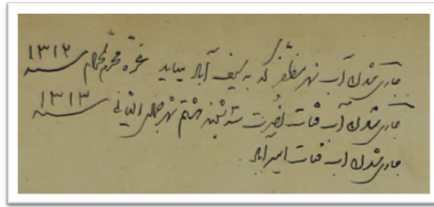 جاری شدن آب نهر مظفری که به سیف آباد میاید غره محرم الحرام سنه ۱۳۱۲
جاری شدن آب قنات نصرت سه شنبه هشتم شهر جمادی الثانی سنه ۱۳۱۳
جاری شدن آب قنات امیرآباد